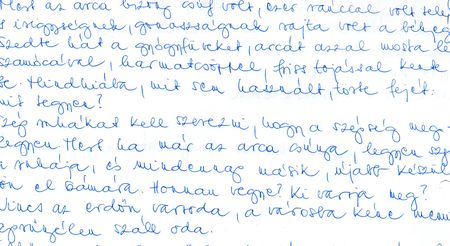 Mert az arca bizony csúf volt, ezer ránccal volt tele
s irigységnek, gonoszságnak rajta volt a bélyeg
Szedte hát a gyógyfüveket, arcát azzal mosta le
szamócával, harmatcseppel, friss tojással kente
be. Mindhiába, mit sem használt, törte fejét:
mit tegyen?
Szép ruhákat kell szerezni, hogy a szépség meg-
legyen Mert ha már az arca csúnya, legyen szép
a ruhája, és mindennap másik, újabb készül
jön el számára. Honnan vegye? Ki varrja meg?
Nincs az erdőn varroda, a városba kéne menni
seprűnyélen száll oda.